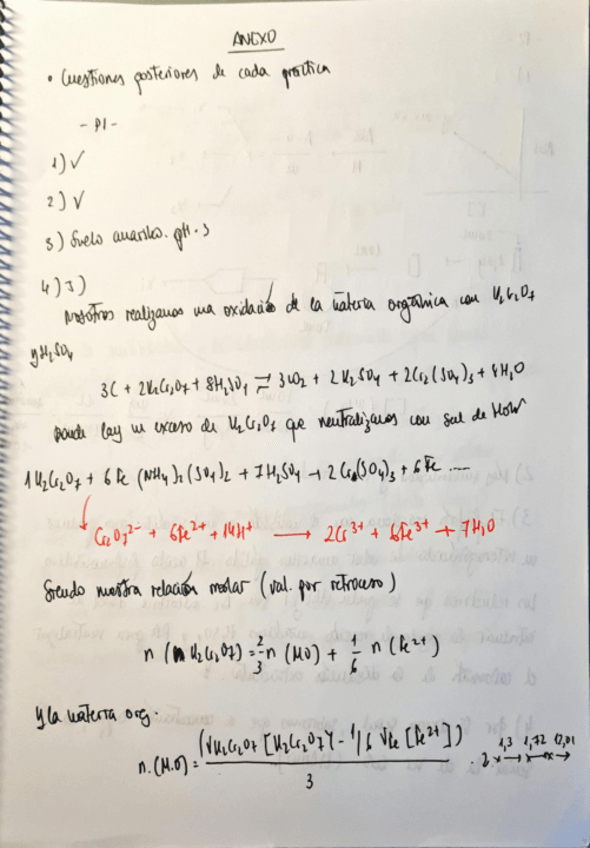 ANEXO
• Cuestiones posteriores de cada práctica
- P1 -
1) √
2) √
3) Suelo amarillo. pH = 3
4) 3)
Nosotros realizamos una oxidación de la materia orgánica con K₂Cr₂O₇
y H₂SO₄
3C + 2K₂Cr₂O₇ + 8H₂SO₄ ⇄ 3CO₂ + 2K₂SO₄ + 2Cr₂(SO₄)₃ + 4H₂O
Donde hay un exceso de K₂Cr₂O₇ que neutralizamos con sal de Mohr
1K₂Cr₂O₇ + 6Fe (NH₄)₂(SO₄)₂ + 7H₂SO₄ → 2Cr₂(SO₄)₃ + 6Fe ....
Cr₂O₇²⁻ + 6Fe²⁺ + 14H⁺ → 2Cr³⁺ + 6Fe³⁺ + 7H₂O
Siendo nuestra relación molar (val. por retroceso)
n (K₂Cr₂O₇) = 2/3 n (MO) + 1/6 n (Fe²⁺)
Y la materia org.
n.(M.O) = (VK₂Cr₂O₇ [K₂Cr₂O₇] - 1/6 VFe [Fe²⁺]) / 3 · 2 · 1,3 1,72 12,01